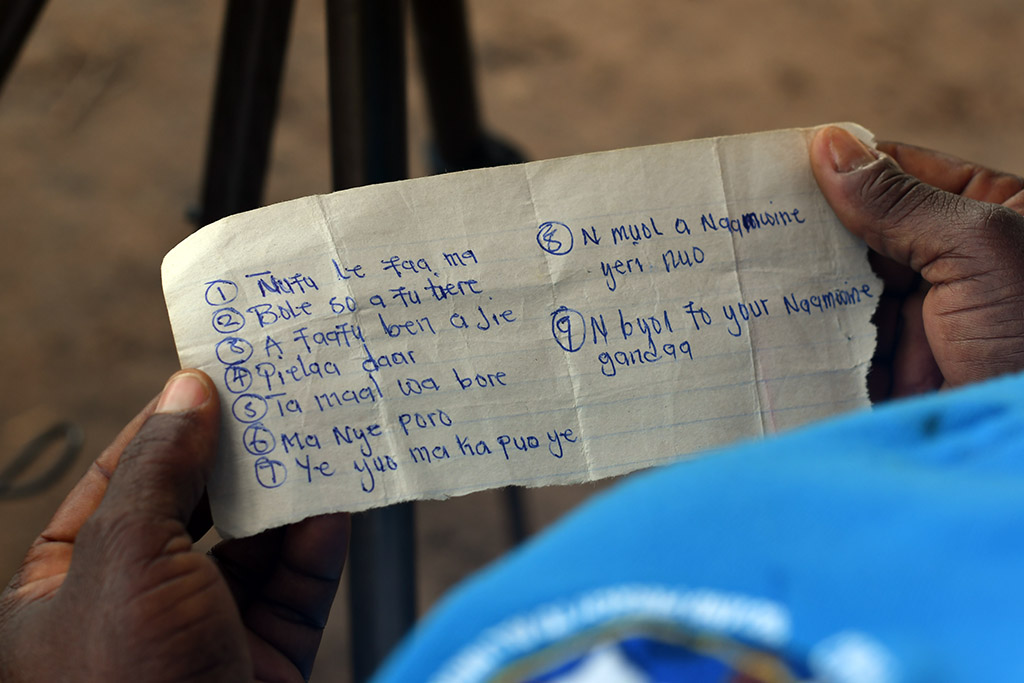 ① Nufu le faa ma
② Bole so a fu bere
③ A faafu ben a Jie
④ Pielaa daar
⑤ Ta maal wa bore
⑥ Ma Nye poro
⑦ Ye yuo ma ka puo ye
⑧ N muol a Naamwine
yeri nuo
⑨ N byol to your Naamwine
gandaa